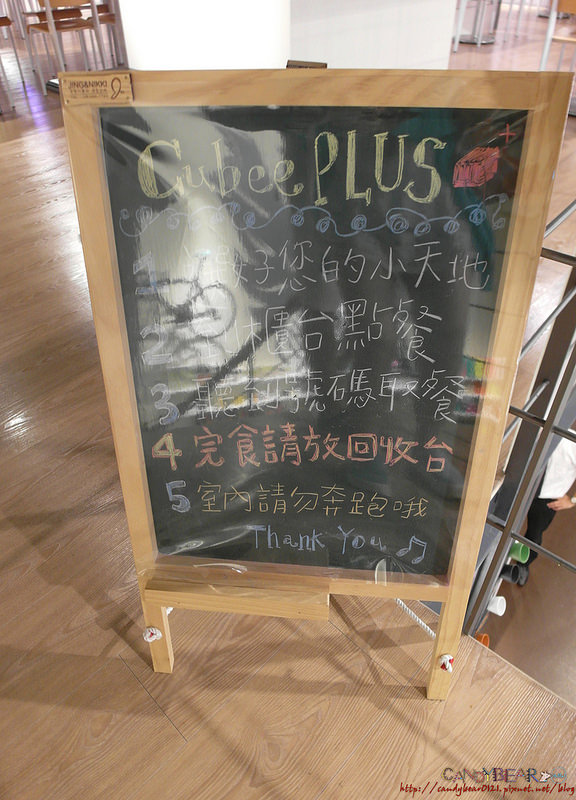 JING&NIKKI
Cubee PLUS
1 好您的小天地
2 到櫃台點餐
3 聽到號碼取餐
4 完食請放回收台
5 室內請勿奔跑哦
Thank You ♫
CANDYBEAR
http://candybear0121.pixnet.net/blog